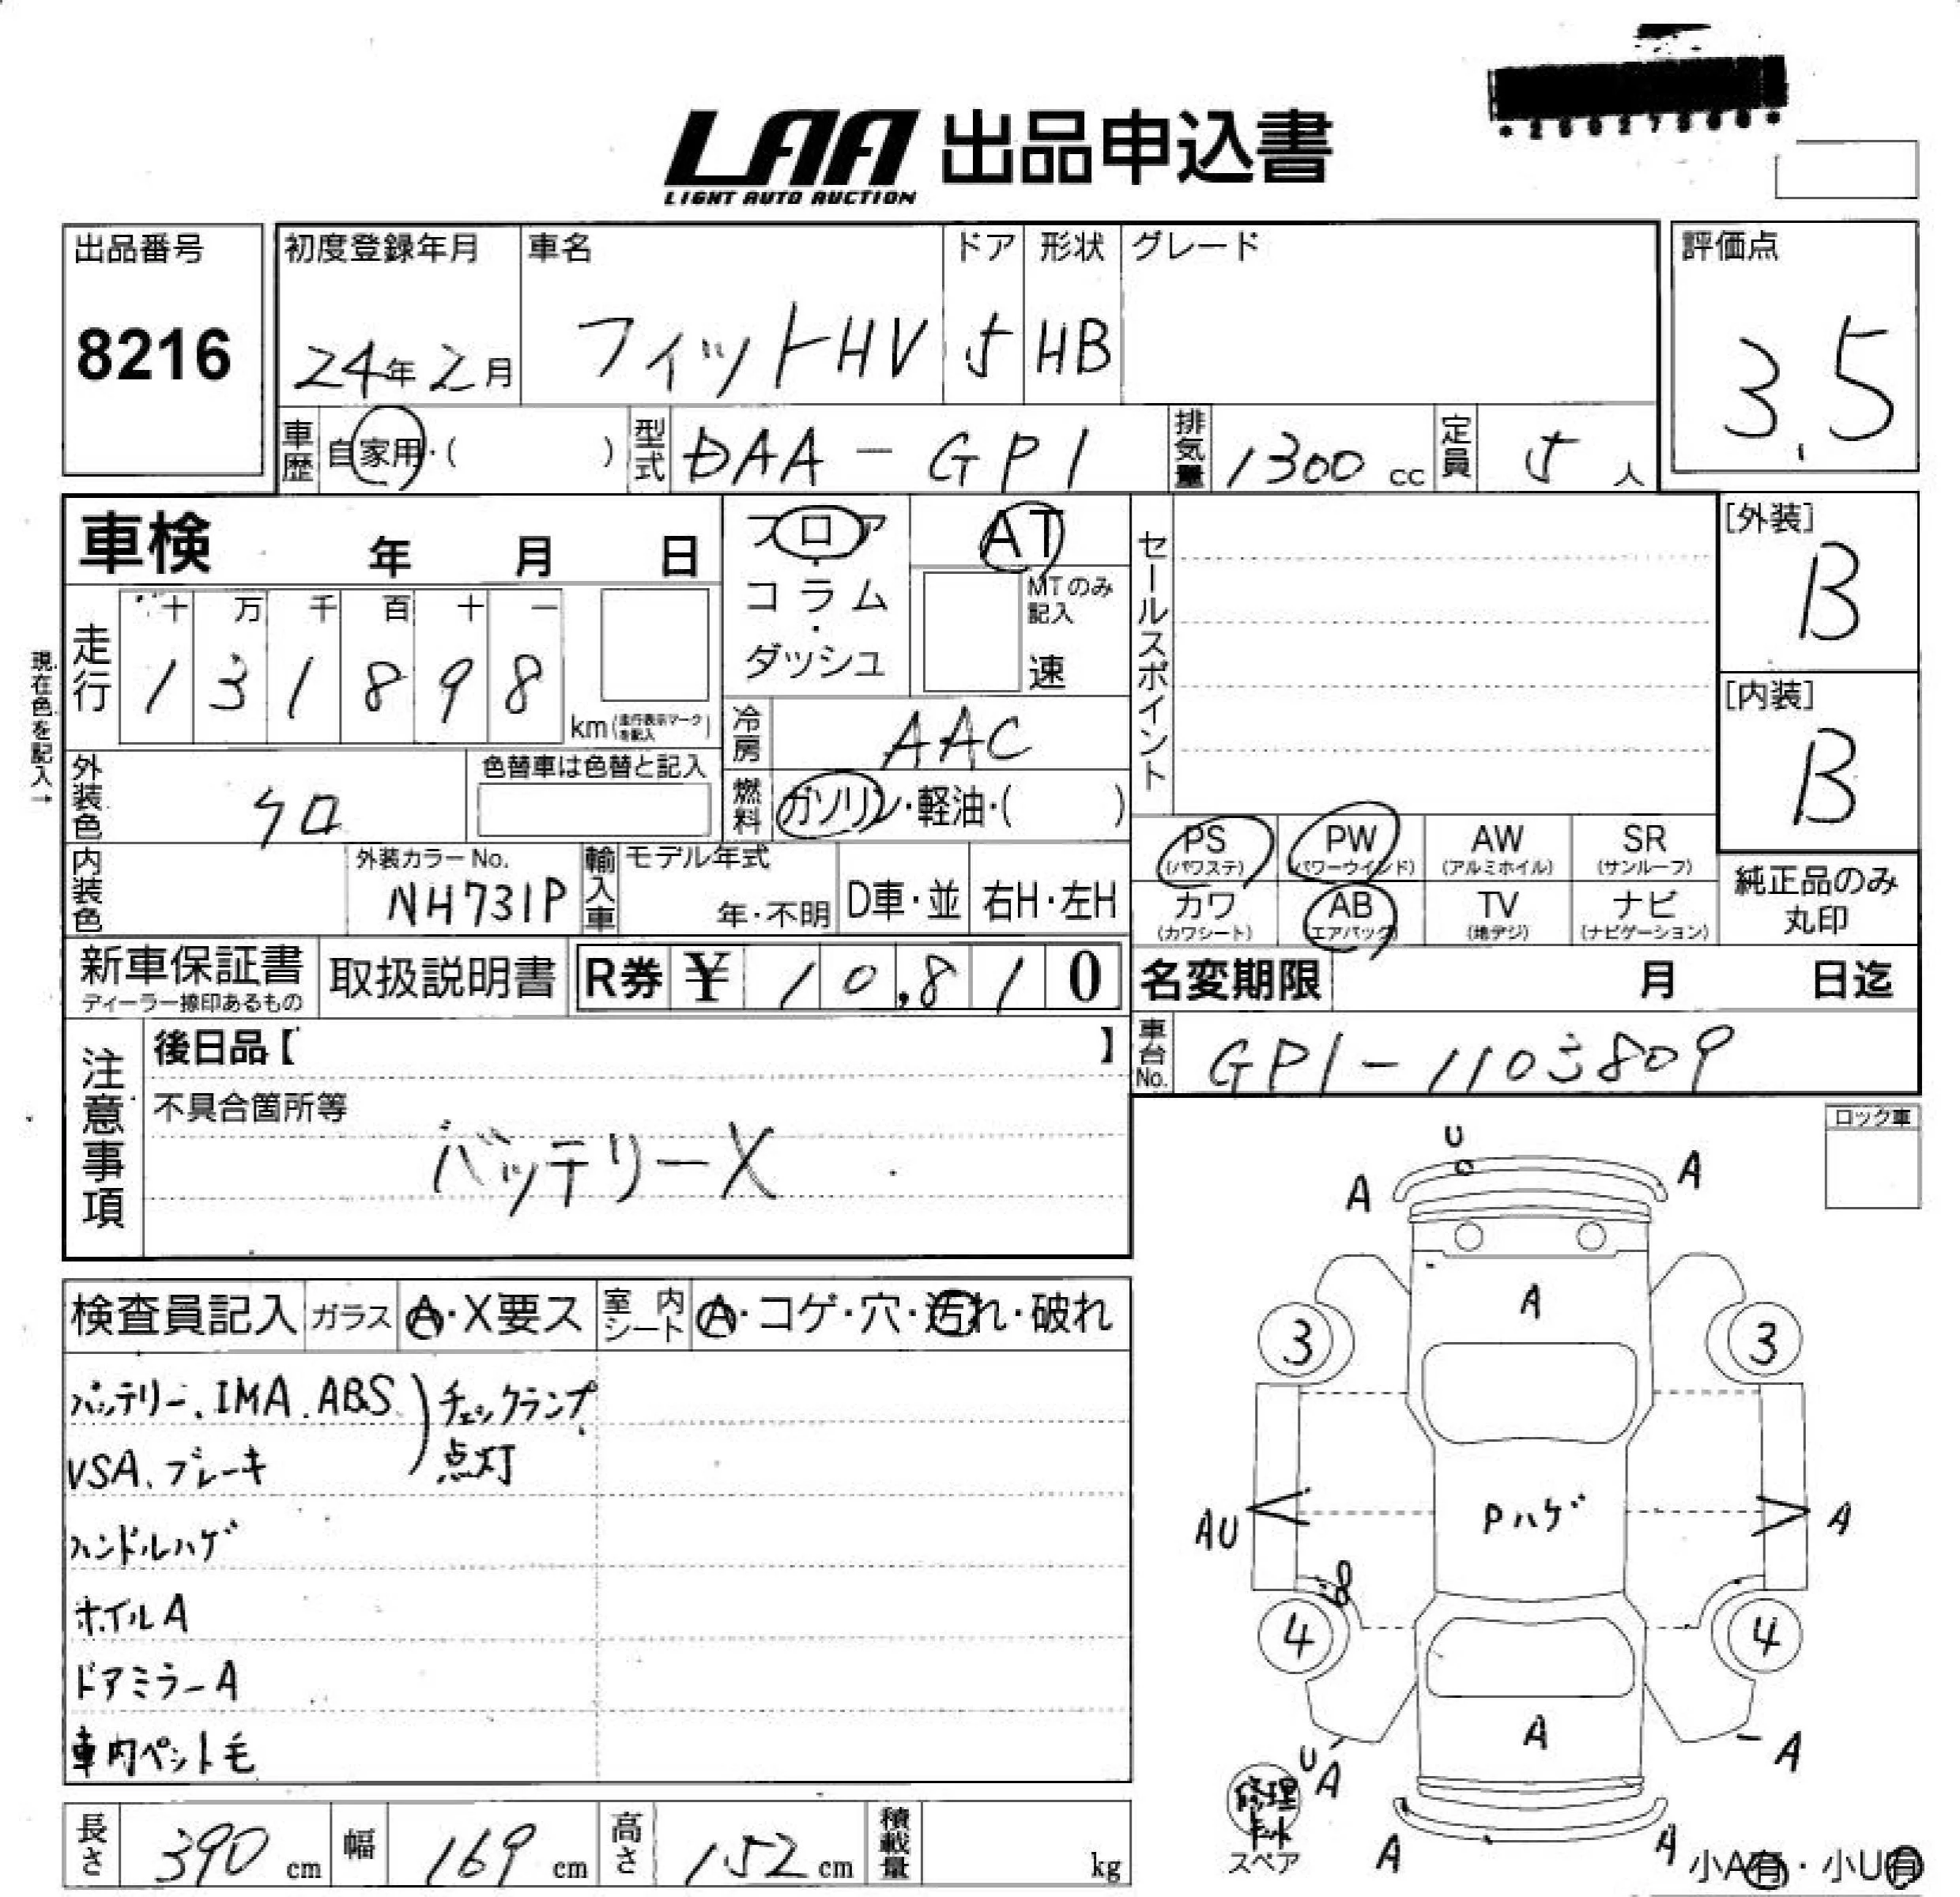 LAA 出品申込書
LIGHT AUTO AUCTION
出品番号
8216
初度登録年月
24年2月
車名
フィットHV
ドア
5
形状
HB
グレード
評価点
3.5
車歴
自家用・( )
型式
DAA-GP1
排気量
1300 cc
定員
5 人
車検 年 月 日
フロア・コラム・ダッシュ
AT
MTのみ記入
速
セールスポイント
[外装]
B
[内装]
B
現在色を記入→
走行
十 万 千 百 十 一
1 3 1 8 9 8
km(走行表示マークを記入)
冷房
AAC
外装色
クロ
色替車は色替と記入
燃料
ガソリン・軽油・( )
内装色
外装カラーNo.
NH731P
輸入車
モデル年式
年・不明
D車・並
右H・左H
PS
(パワステ)
PW
(パワーウインド)
AW
(アルミホイル)
SR
(サンルーフ)
カワ
(カワシート)
AB
(エアバック)
TV
(地デジ)
ナビ
(ナビゲーション)
純正品のみ
丸印
新車保証書
ディーラー捺印あるもの
取扱説明書
R券 ¥ 10,810
名変期限 月 日迄
車台No.
GP1-1103809
注意事項
後日品【 】
不具合箇所等
バッテリーX
ロック車
検査員記入
ガラス
A・X要ス
室内シート
A・コゲ・穴・汚れ・破れ
バッテリー、IMA、ABS
VSA、ブレーキ
チェックランプ
点灯
ハンドルハゲ
ホイルA
ドアミラーA
車内ペット毛
U
A
A
A
3
3
AU
Pハゲ
A
4
4
A
U
A
A
修理
キット
スペア
A
A
小A有・小U有
長さ
390 cm
幅
169 cm
高さ
152 cm
積載量
kg